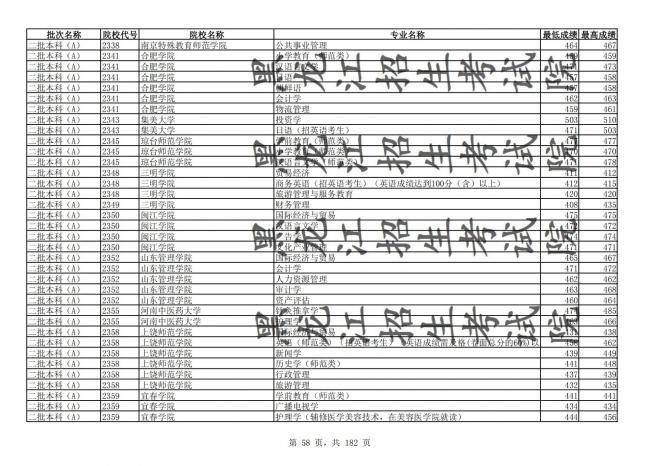 批次名称 院校代号 院校名称 专业名称 最低成绩 最高成绩
二批本科（A） 2338 南京特殊教育师范学院 公共事业管理 464 467
二批本科（A） 2341 合肥学院 小学教育（师范类） 459
二批本科（A） 2341 合肥学院 473
二批本科（A） 2341 合肥学院 458
二批本科（A） 2341 合肥学院 458
二批本科（A） 2341 合肥学院 会计学 462 463
二批本科（A） 2341 合肥学院 物流管理 459 461
二批本科（A） 2343 集美大学 投资学 503 510
二批本科（A） 2343 集美大学 日语（招英语考生） 471 503
二批本科（A） 2345 琼台师范学院 学前教育（师范类） 477
二批本科（A） 2345 琼台师范学院 小学教育（师范类） 470
二批本科（A） 2345 琼台师范学院 汉语言文学（师范类） 471 478
二批本科（A） 2348 三明学院 贸易经济 411 412
二批本科（A） 2348 三明学院 商务英语（招英语考生）（英语成绩达到100分（含）以上） 412 415
二批本科（A） 2348 三明学院 旅游管理与服务教育 420 420
二批本科（A） 2349 三明学院 财务管理 408 435
二批本科（A） 2350 闽江学院 国际经济与贸易 475 475
二批本科（A） 2350 闽江学院 汉语言文学 472
二批本科（A） 2350 闽江学院 广告学 474
二批本科（A） 2350 闽江学院 文化产业管理 471 471
二批本科（A） 2352 山东管理学院 国际经济与贸易 465 467
二批本科（A） 2352 山东管理学院 会计学 471 472
二批本科（A） 2352 山东管理学院 人力资源管理 462 462
二批本科（A） 2352 山东管理学院 审计学 463 468
二批本科（A） 2352 山东管理学院 资产评估 460 464
二批本科（A） 2355 河南中医药大学 针灸推拿学 485
二批本科（A） 2355 河南中医药大学 护理学 466
二批本科（A） 2358 上饶师范学院 国际经济与贸易 438
二批本科（A） 2358 上饶师范学院 英语（师范类）（招英语考生）（英语成绩需及格(卷面总分的60%)以 462
二批本科（A） 2358 上饶师范学院 新闻学 439 449
二批本科（A） 2358 上饶师范学院 历史学（师范类） 441 448
二批本科（A） 2358 上饶师范学院 行政管理 437 439
二批本科（A） 2358 上饶师范学院 旅游管理 432 435
二批本科（A） 2359 宜春学院 学前教育（师范类） 441 441
二批本科（A） 2359 宜春学院 广播电视学 434 434
二批本科（A） 2359 宜春学院 护理学（辅修医学美容技术，在美容医学院就读） 444 456
黑龙江招生考试院
黑龙江招生考试院
黑龙江招生考试院
黑龙江招生考试院
第 58 页，共 182 页